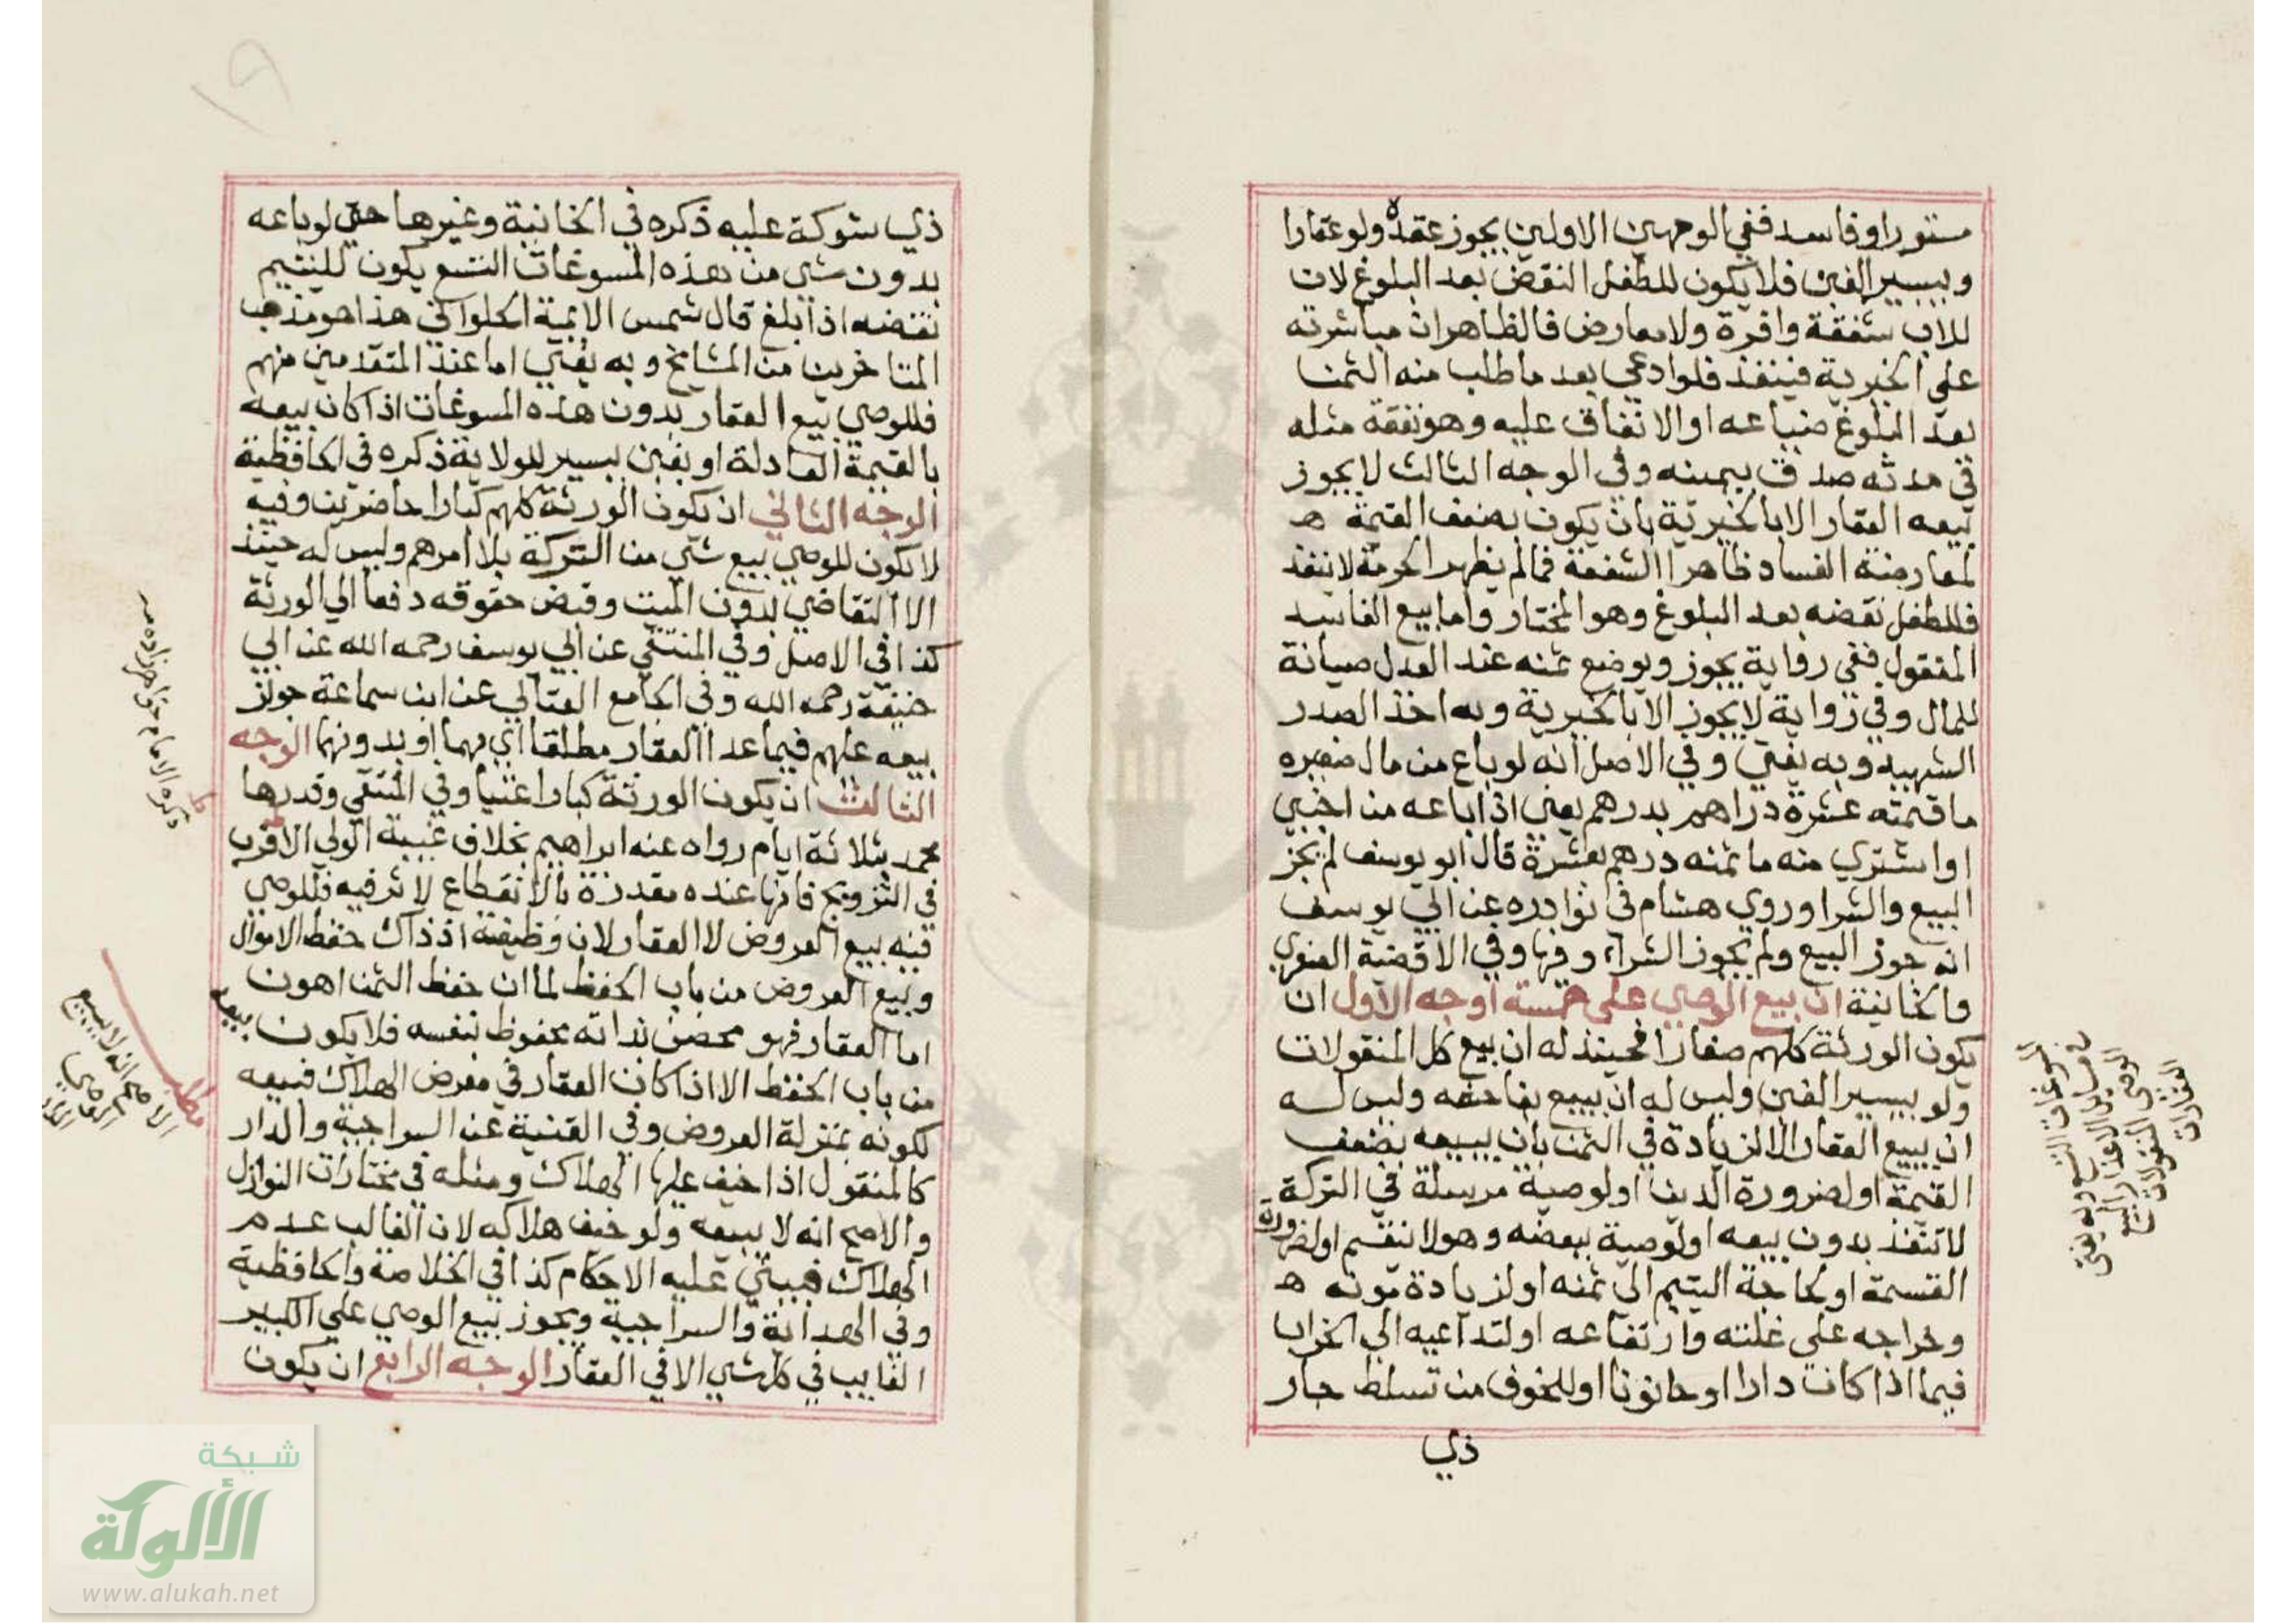 مستورا وفاسد ففي الوجهين الاولين يجوز عقده ولو عقارا
وبيسير الغبن فلا يكون للطفل النقض بعد البلوغ لان
للاب شفقة وافرة ولا معارض فالظاهر ان مباشرته
على الخيرية فينفذ فلو ادعي بعد ما طلب منه الثمن
بعد البلوغ ضياعه او الانفاق عليه وهو نفقة مثله
في مدته صدق بيمينه وفي الوجه الثالث لا يجوز
بيعه العقار الا بالخيرية بان يكون بضعف القيمة ه
لمعارضة الفساد ظاهرا الشفعة فما لم يظهر الخرمة لا ينفذ
فللطفل نقضه بعد البلوغ وهو المختار واما بيع الفاسد
المنقول ففي رواية يجوز ويوضع ثمنه عند العدل صيانة
للمال وفي رواية لا يجوز الا بالخيرية وبه اخذ الصدر
الشهيد وبه يفتي وفي الاصل انه لو باع من مال صغيره
ما قيمته عشرة دراهم بدرهم يعني اذا باعه من اجنبي
او اشتري منه ما ثمنه درهم بعشرة قال ابو يوسف لم يجز
البيع والشرا وروي هشام في نوادره عن ابي يوسف
انه جوز البيع ولم يجوز الشراء وفيها وفي الاقضية الصغري
والخانية ان بيع الوصي على خمسة اوجه الاول ان
يكون الورثة كلهم صغارا فحينئذ له ان بيع كل المنقولات
ولو بيسير الغبن وليس له ان يبيع بفاحشه وليس له
ان يبيع العقار الا لزيادة في الثمن بان يبيعه بضعف
القيمة او لضرورة الدين او لوصية مرسلة في التركة
لا تنفذ بدون بيعه او لوصية ببعضه وهو لا ينقسم او لضرورة
القسمة او لحاجة اليتيم الي ثمنه او لزيادة مونه ه
وخراجه على غلته وارتفاعه او لتداعيه الي الخراب
فيما اذا كانت دارا او حانوتا او للخوف من تسلط جار
ذي
المسوغات التسع وبه يفتى
في مسايل الاعذار لبيع
الوصي المنقولات
العقارات
ذي شوكة عليه ذكره في الخانية وغيرها حتي لو باعه
بدون شي من هذه المسوغات التسع يكون لليتيم
نقضه اذا بلغ قال شمس الايمة الحلواني هذا هو مذهب
المتاخرين من المشايخ وبه يفتي اما عند المتقدمين منهم
فللوصي بيع العقار بدون هذه المسوغات اذا كان بيعه
بالقيمة العادلة او بغبن يسير للولاية ذكره في الحافظية
الوجه الثاني ان يكون الورثة كلهم كبارا حاضرين وفيه
لا يكون للوصي بيع شي من التركة بلا امرهم وليس له حينئذ
الا التقاضي لديون الميت وقبض حقوقه دفعا الي الورثة
كذا في الاصل وفي المنتقي عن ابي يوسف رحمه الله عن ابي
حنيفة رحمه الله وفي الجامع العتابي عن ابن سماعة جواز
بيعه عليهم فيما عدا العقار مطلقا اي بهما او بدونها الوجه
الثالث ان يكون الورثة كبارا غيبا وفي المنتقي وقدرها
محمد بثلاثة ايام رواه عنه ابراهيم بخلاف غيبة الولي الاقرب
في التزويج فانها عنده مقدرة بالانقطاع لا ثر فيه فللوصي
فيه بيع العروض لا العقار لان وظيفته اذ ذاك حفظ الاموال
وبيع العروض من باب الحفظ لما ان حفظ الثمن اهون
اما العقار فهو محصن بذاته محفوظ بنفسه فلا يكون بيعه
من باب الحفظ الا اذا كان العقار في معرض الهلاك فبيعه
لكونه بمنزلة العروض وفي القنية عن السراجية والدار
كالمنقول اذا خيف عليها الهلاك ومثله في مختارات النوازل
والاصح انه لا يبيعه ولو خيف هلاكه لان الغالب عدم
الهلاك فيبتني عليه الاحكام كذا في الخلاصة والحافظية
وفي الهداية والسراجية ويجوز بيع الوصي علي الكبير
الغايب في كل شي الا في العقار الوجه الرابع ان يكون
ذكره الامام خواهرزاده
مطلب
الاصح انه لا يبيع
الوصي
شبكة
الألوكة
www.alukah.net